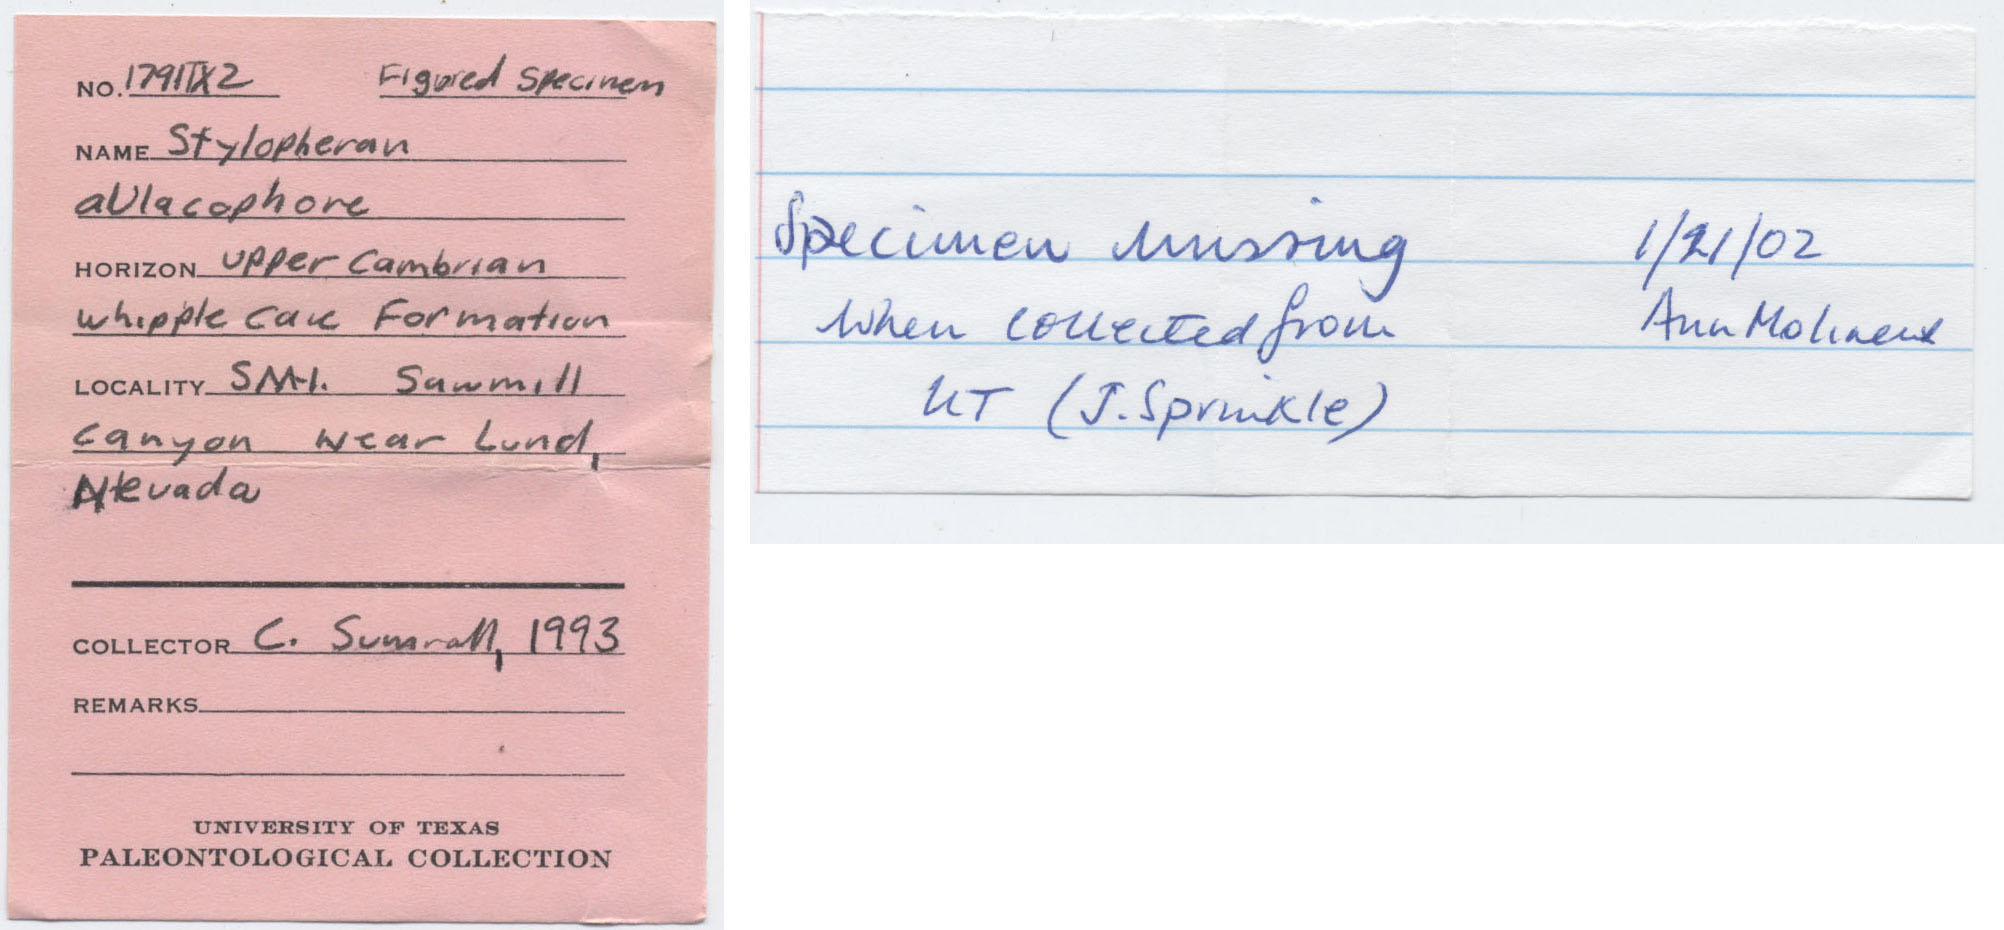 NO. 1791TX2 Figured Specimen
NAME Stylopheran
aulacophore
HORIZON upper Cambrian
Whipple Cave Formation
LOCALITY SM-1. Sawmill
canyon Near Lund,
Nevada
COLLECTOR C. Sumrall, 1993
REMARKS
UNIVERSITY OF TEXAS
PALEONTOLOGICAL COLLECTION
Specimen missing 1/21/02
when collected from Ann Molineux
UT (J. Sprinkle)